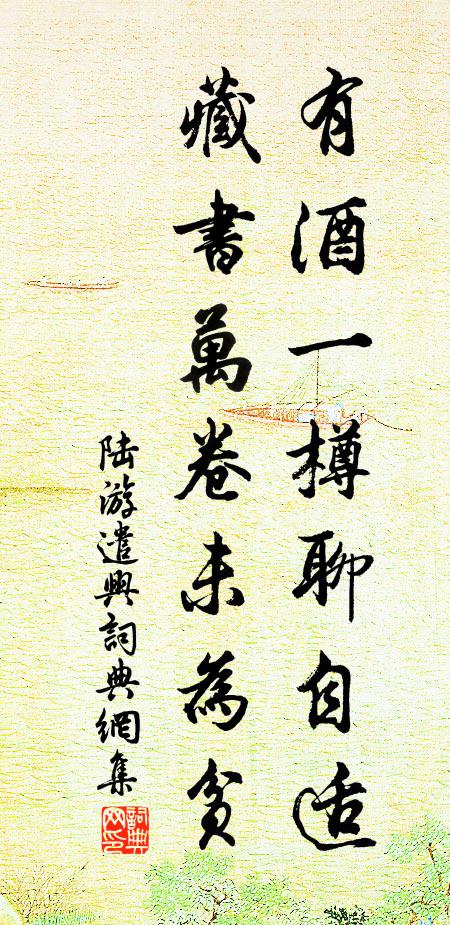 有酒一樽聊自适
藏書萬卷未為貧
陆游遣興詞典網集
詞典网印